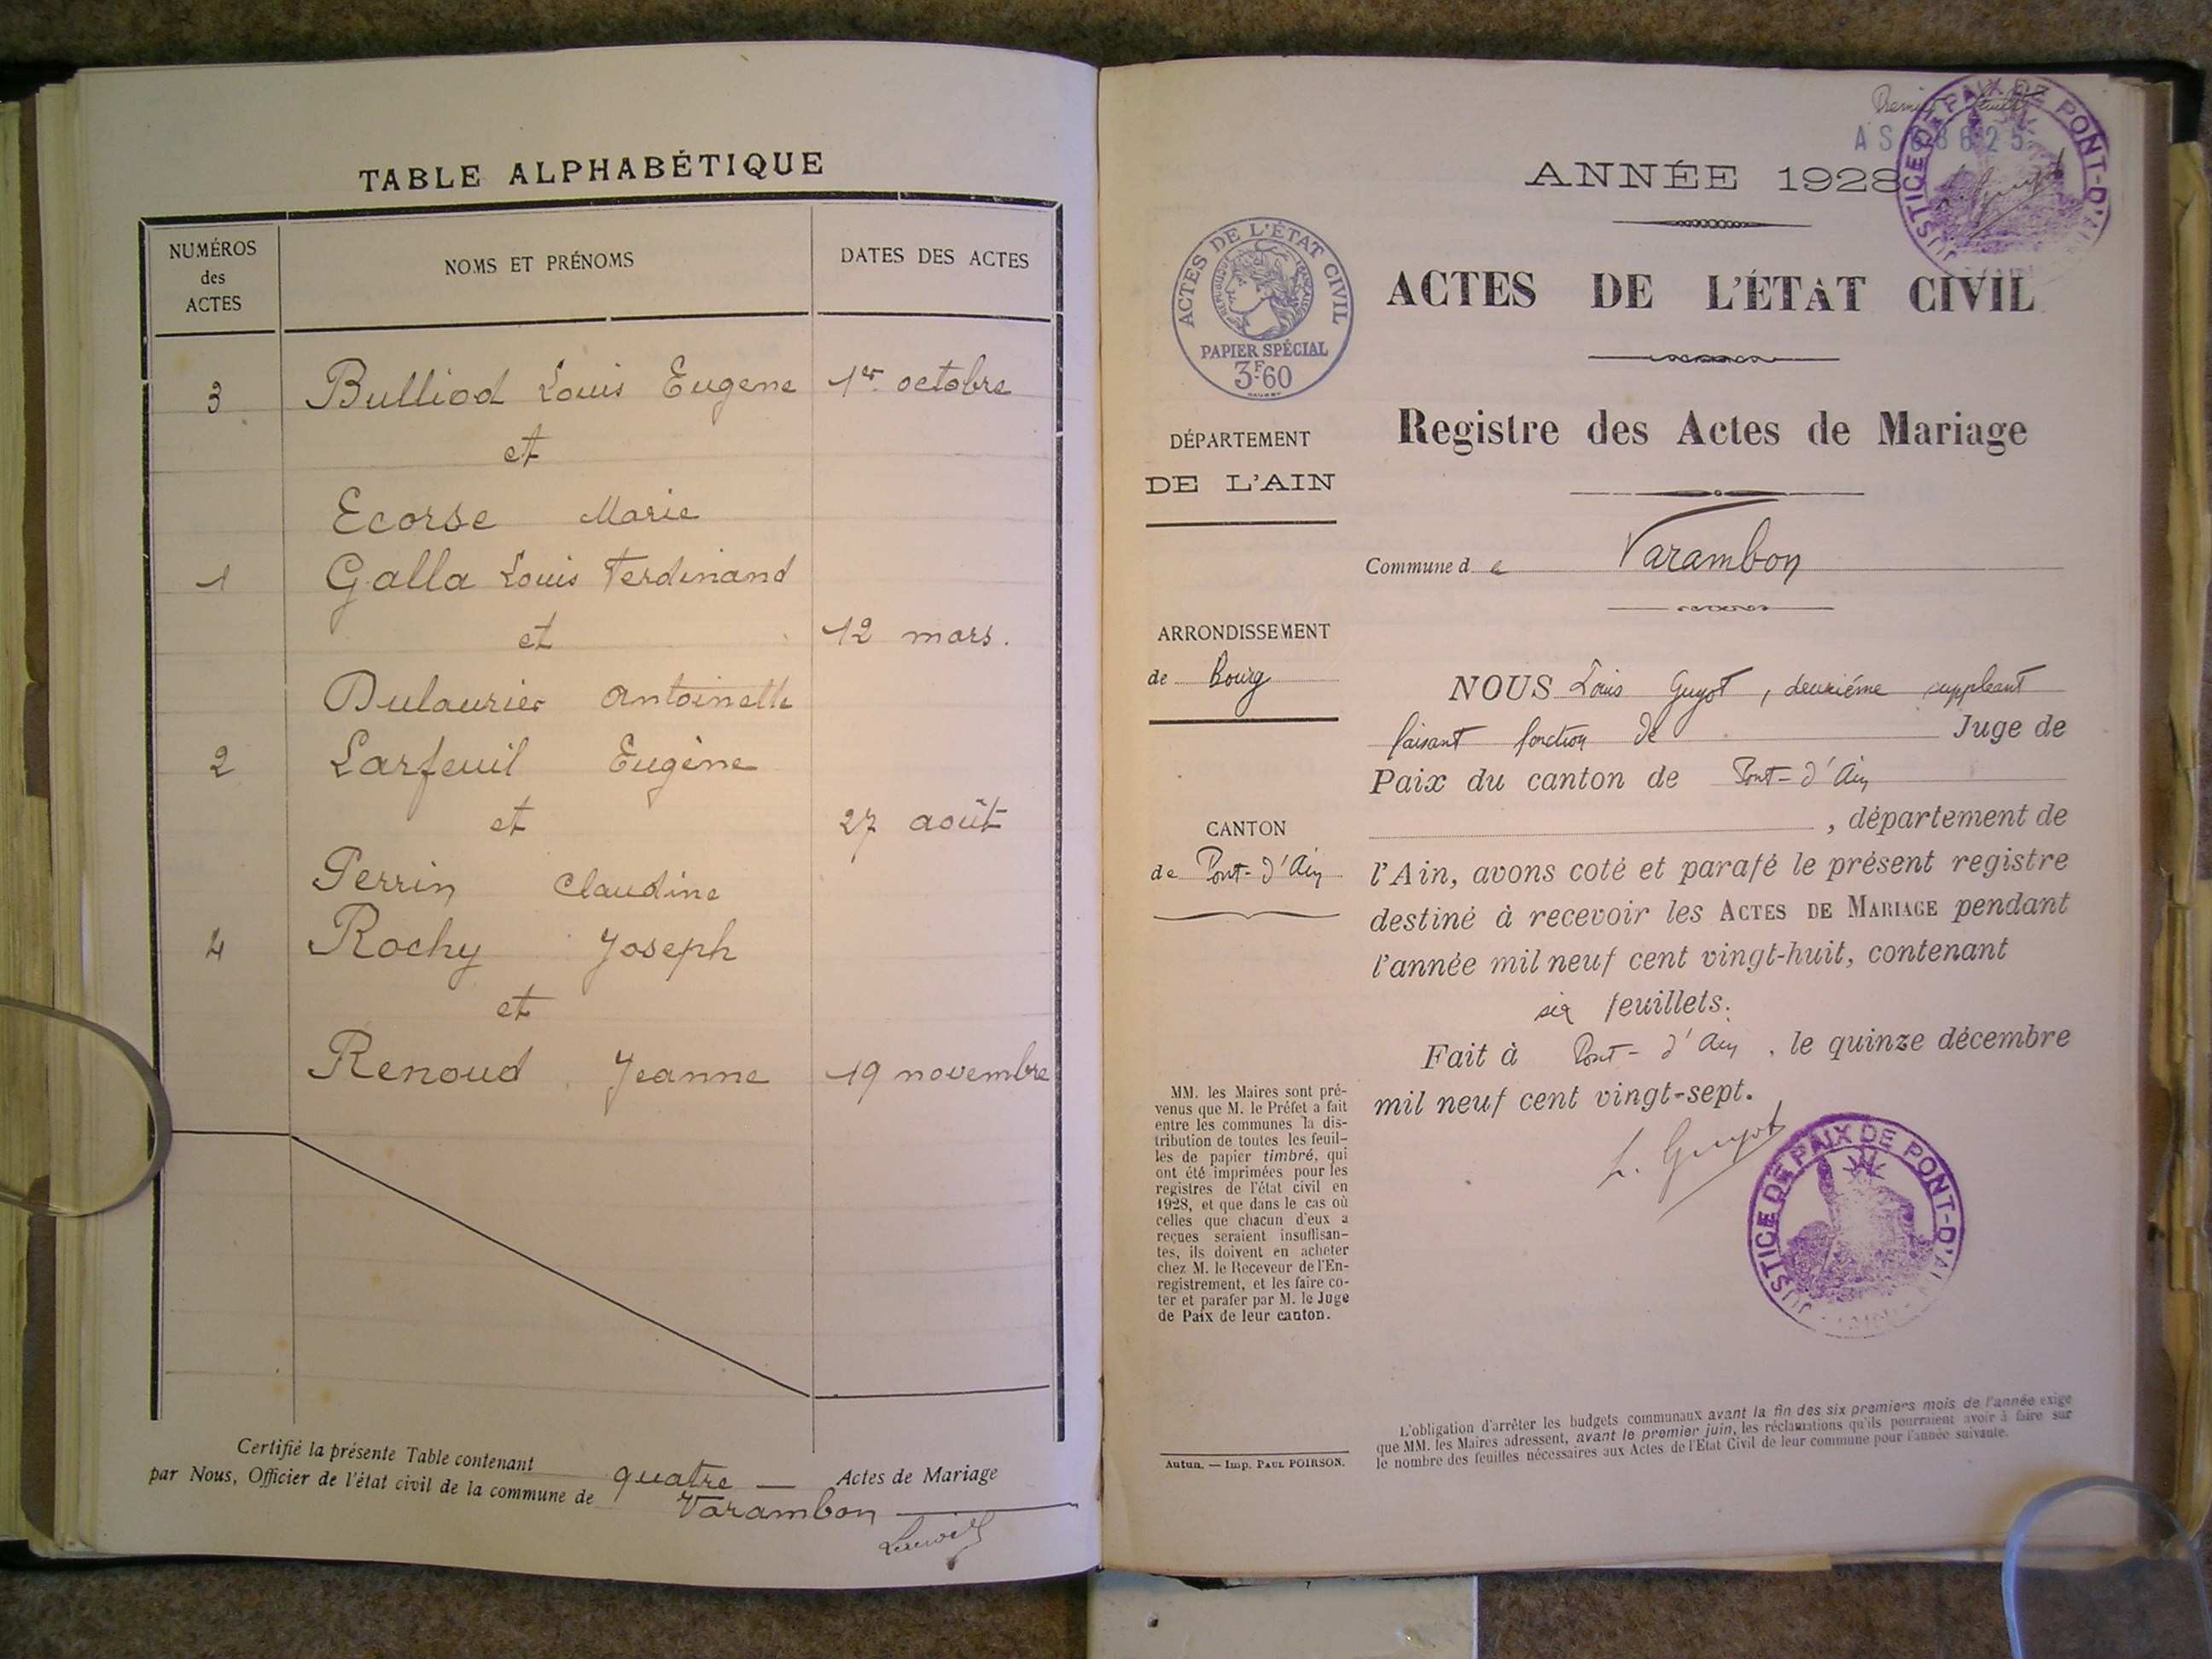 TABLE ALPHABÉTIQUE
NUMÉROS des ACTES
NOMS ET PRÉNOMS
DATES DES ACTES
3 Bulliod Louis Eugene 1er octobre
et
Ecorse Marie
1 Galla Louis Ferdinand
et 12 mars.
Dulaurier Antoinette
2 Larfeuil Eugène
et 27 août
Perrin Claudine
4 Rochy Joseph
et
Renoud Jeanne 19 novembre
Certifié la présente Table contenant quatre — Actes de Mariage
par Nous, Officier de l'état civil de la commune de Varambon
Premier feuillet
ANNÉE 1928
JUSTICE DE PAIX DE PONT-D'AIN
ACTES DE L'ÉTAT CIVIL
RÉPUBLIQUE FRANÇAISE
PAPIER SPÉCIAL
3F60
ACTES DE L'ÉTAT CIVIL
Registre des Actes de Mariage
DÉPARTEMENT
DE L'AIN
Commune de Varambon
ARRONDISSEMENT
de Bourg
CANTON
de Pont-d'Ain
NOUS Louis Guyot, deuxième suppleant
faisant fonction de Juge de
Paix du canton de Pont-d'Ain
, département de
l'Ain, avons coté et parafé le présent registre
destiné à recevoir les ACTES DE MARIAGE pendant
l'année mil neuf cent vingt-huit, contenant
six feuillets.
Fait à Pont-d'Ain, le quinze décembre
mil neuf cent vingt-sept.
L. Guyot
JUSTICE DE PAIX DE PONT-D'AIN
MM. les Maires sont pré-
venus que M. le Préfet a fait
entre les communes la dis-
tribution de toutes les feuil-
les de papier timbré, qui
ont été imprimées pour les
registres de l'état civil en
1928, et que dans le cas où
celles que chacun d'eux a
reçues seraient insuffisan-
tes, ils doivent en acheter
chez M. le Receveur de l'En-
registrement, et les faire co-
ter et parafer par M. le Juge
de Paix de leur canton.
Autun. — Imp. PAUL POIRSON.
L'obligation d'arrêter les budgets communaux avant la fin des six premiers mois de l'année exige
que MM. les Maires adressent, avant le premier juin, les réclamations qu'ils pourraient avoir à faire sur
le nombre des feuilles nécessaires aux Actes de l'Etat Civil de leur commune pour l'année suivante.